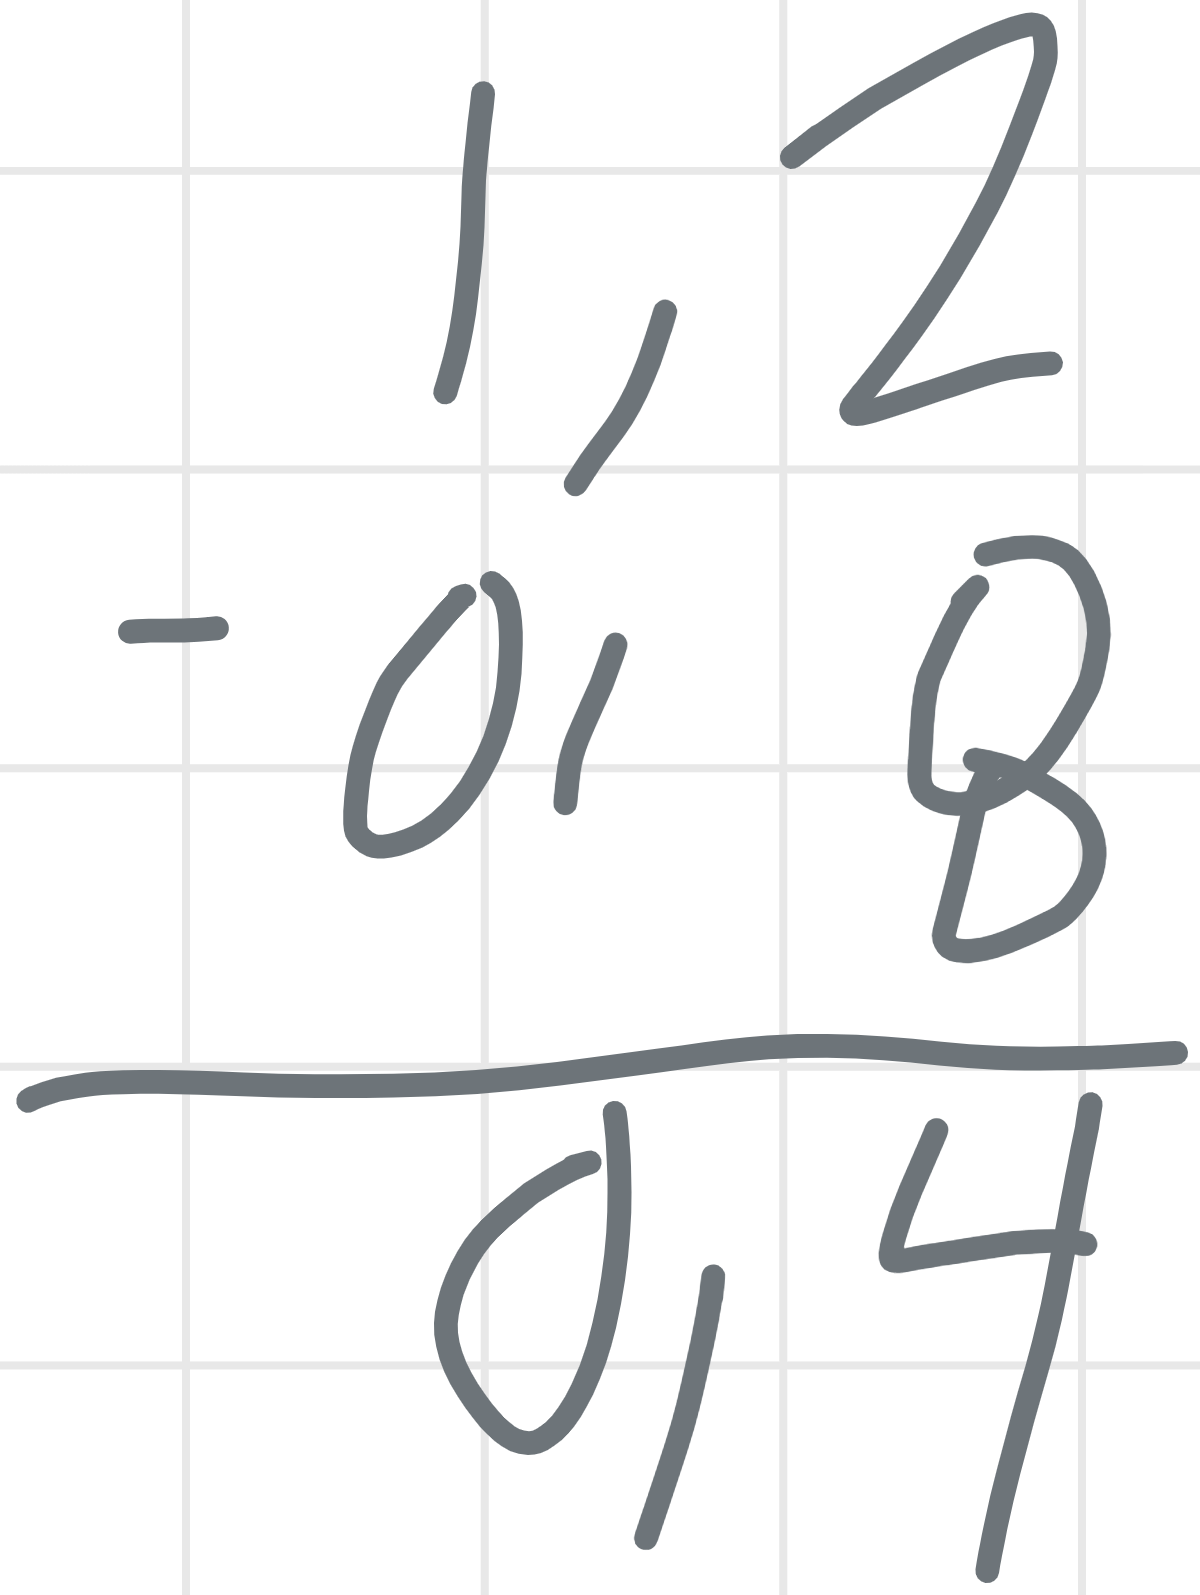 1,2
- 0,8
0,4